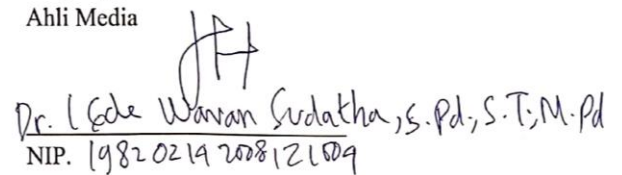 Ahli Media
Dr. I Gde Wawan Sudatha, S.Pd., S.T., M.Pd
NIP. 198202142008121004